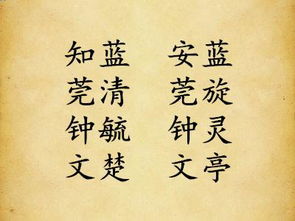 知蓝 安蓝
莞清 莞旋
钟毓 钟灵
文楚 文亭